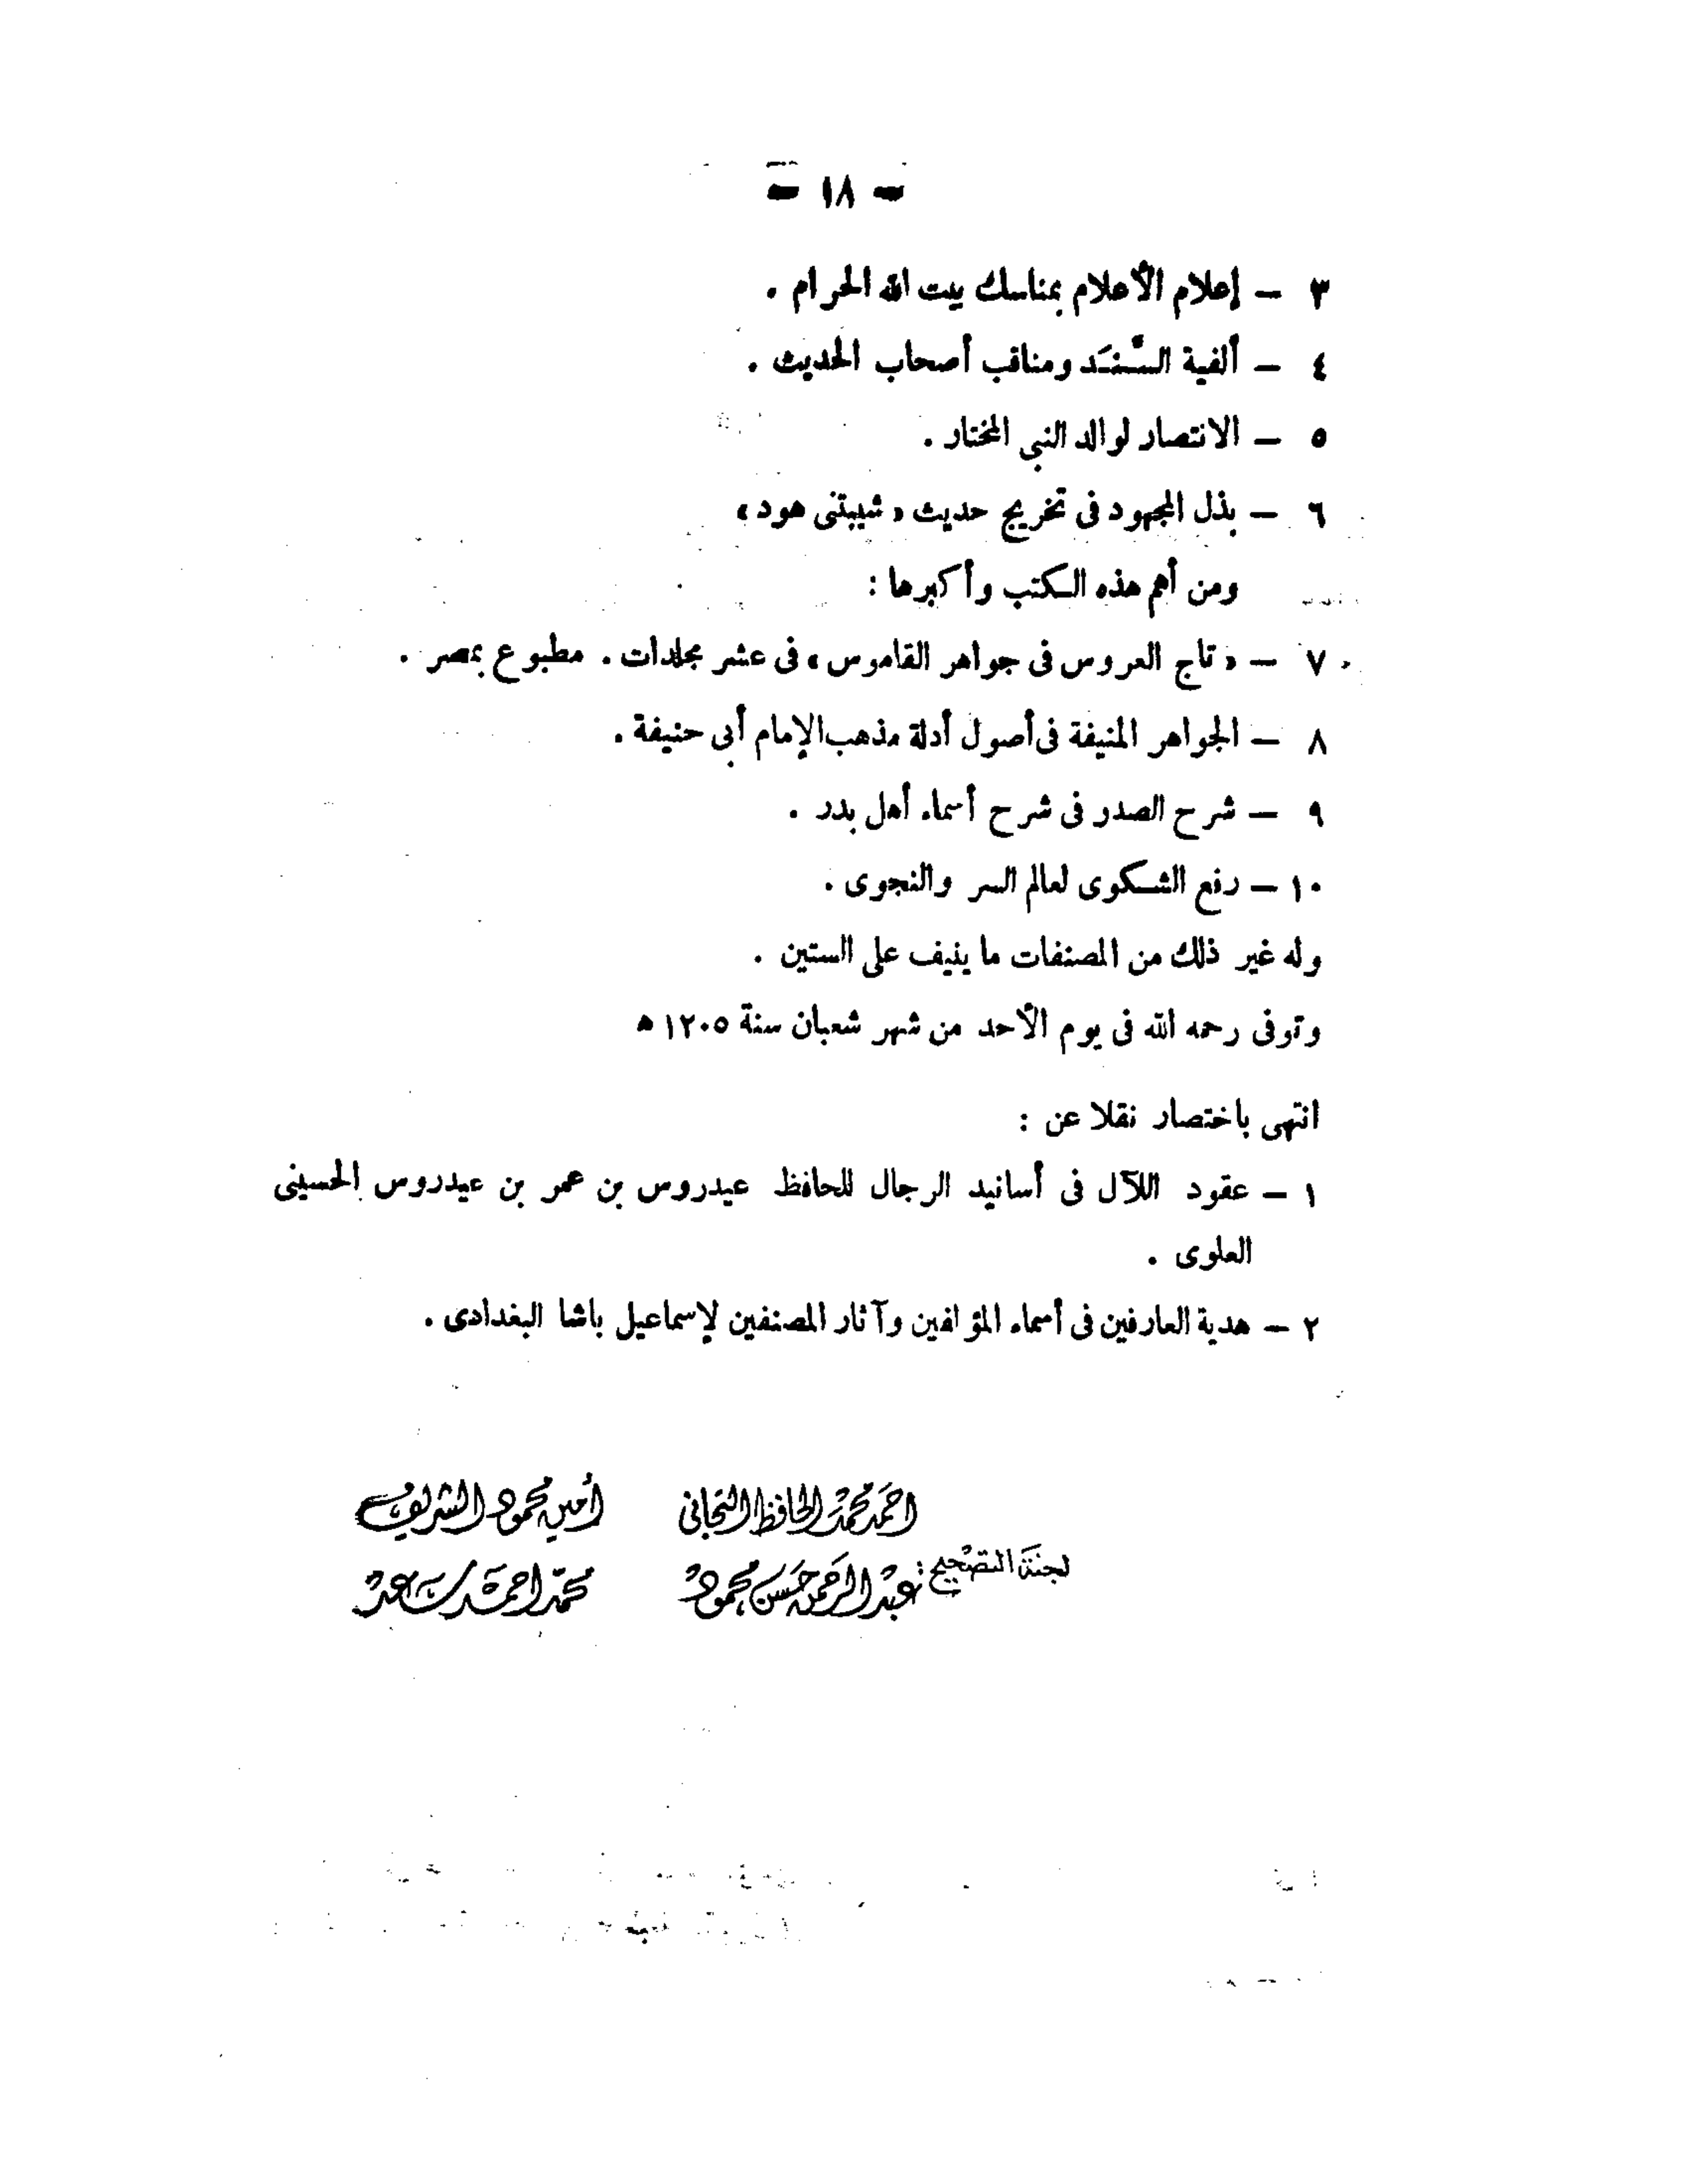 — ١٨ —
٣ — إعلام الأعلام بمناسك بيت الله الحرام .
٤ — ألفية السَّنَد ومناقب أصحاب الحديث .
٥ — الانتصار لوالد النبى المختار .
٦ — بذل المجهود فى تخريج حديث « شيبتنى هود »
ومن أهم هذه الكتب وأكبرها :
٧ — « تاج العروس فى جواهر القاموس » فى عشر مجلدات . مطبوع بمصر .
٨ — الجواهر المنيفة فى أصول أدلة مذهب الإمام أبى حنيفة .
٩ — شرح الصدر فى شرح أسماء أهل بدر .
١٠ — رفع الشكوى لعالم السر والنجوى .
وله غير ذلك من المصنفات ما ينيف على الستين .
وتوفى رحمه الله فى يوم الأحد من شهر شعبان سنة ١٢٠٥ ه
انتهى باختصار نقلا عن :
١ — عقود اللآل فى أسانيد الرجال للحافظ عيدروس بن عمر بن عيدروس الحسينى
العلوى .
٢ — هدية العارفين فى أسماء المؤلفين وآثار المصنفين لإسماعيل باشا البغدادى .
احمد محمد الحافظ التجانى أمين محمود الشريف
لجنة التصحيح :
عبد الرحمن حسن محمود محمد احمد سعد